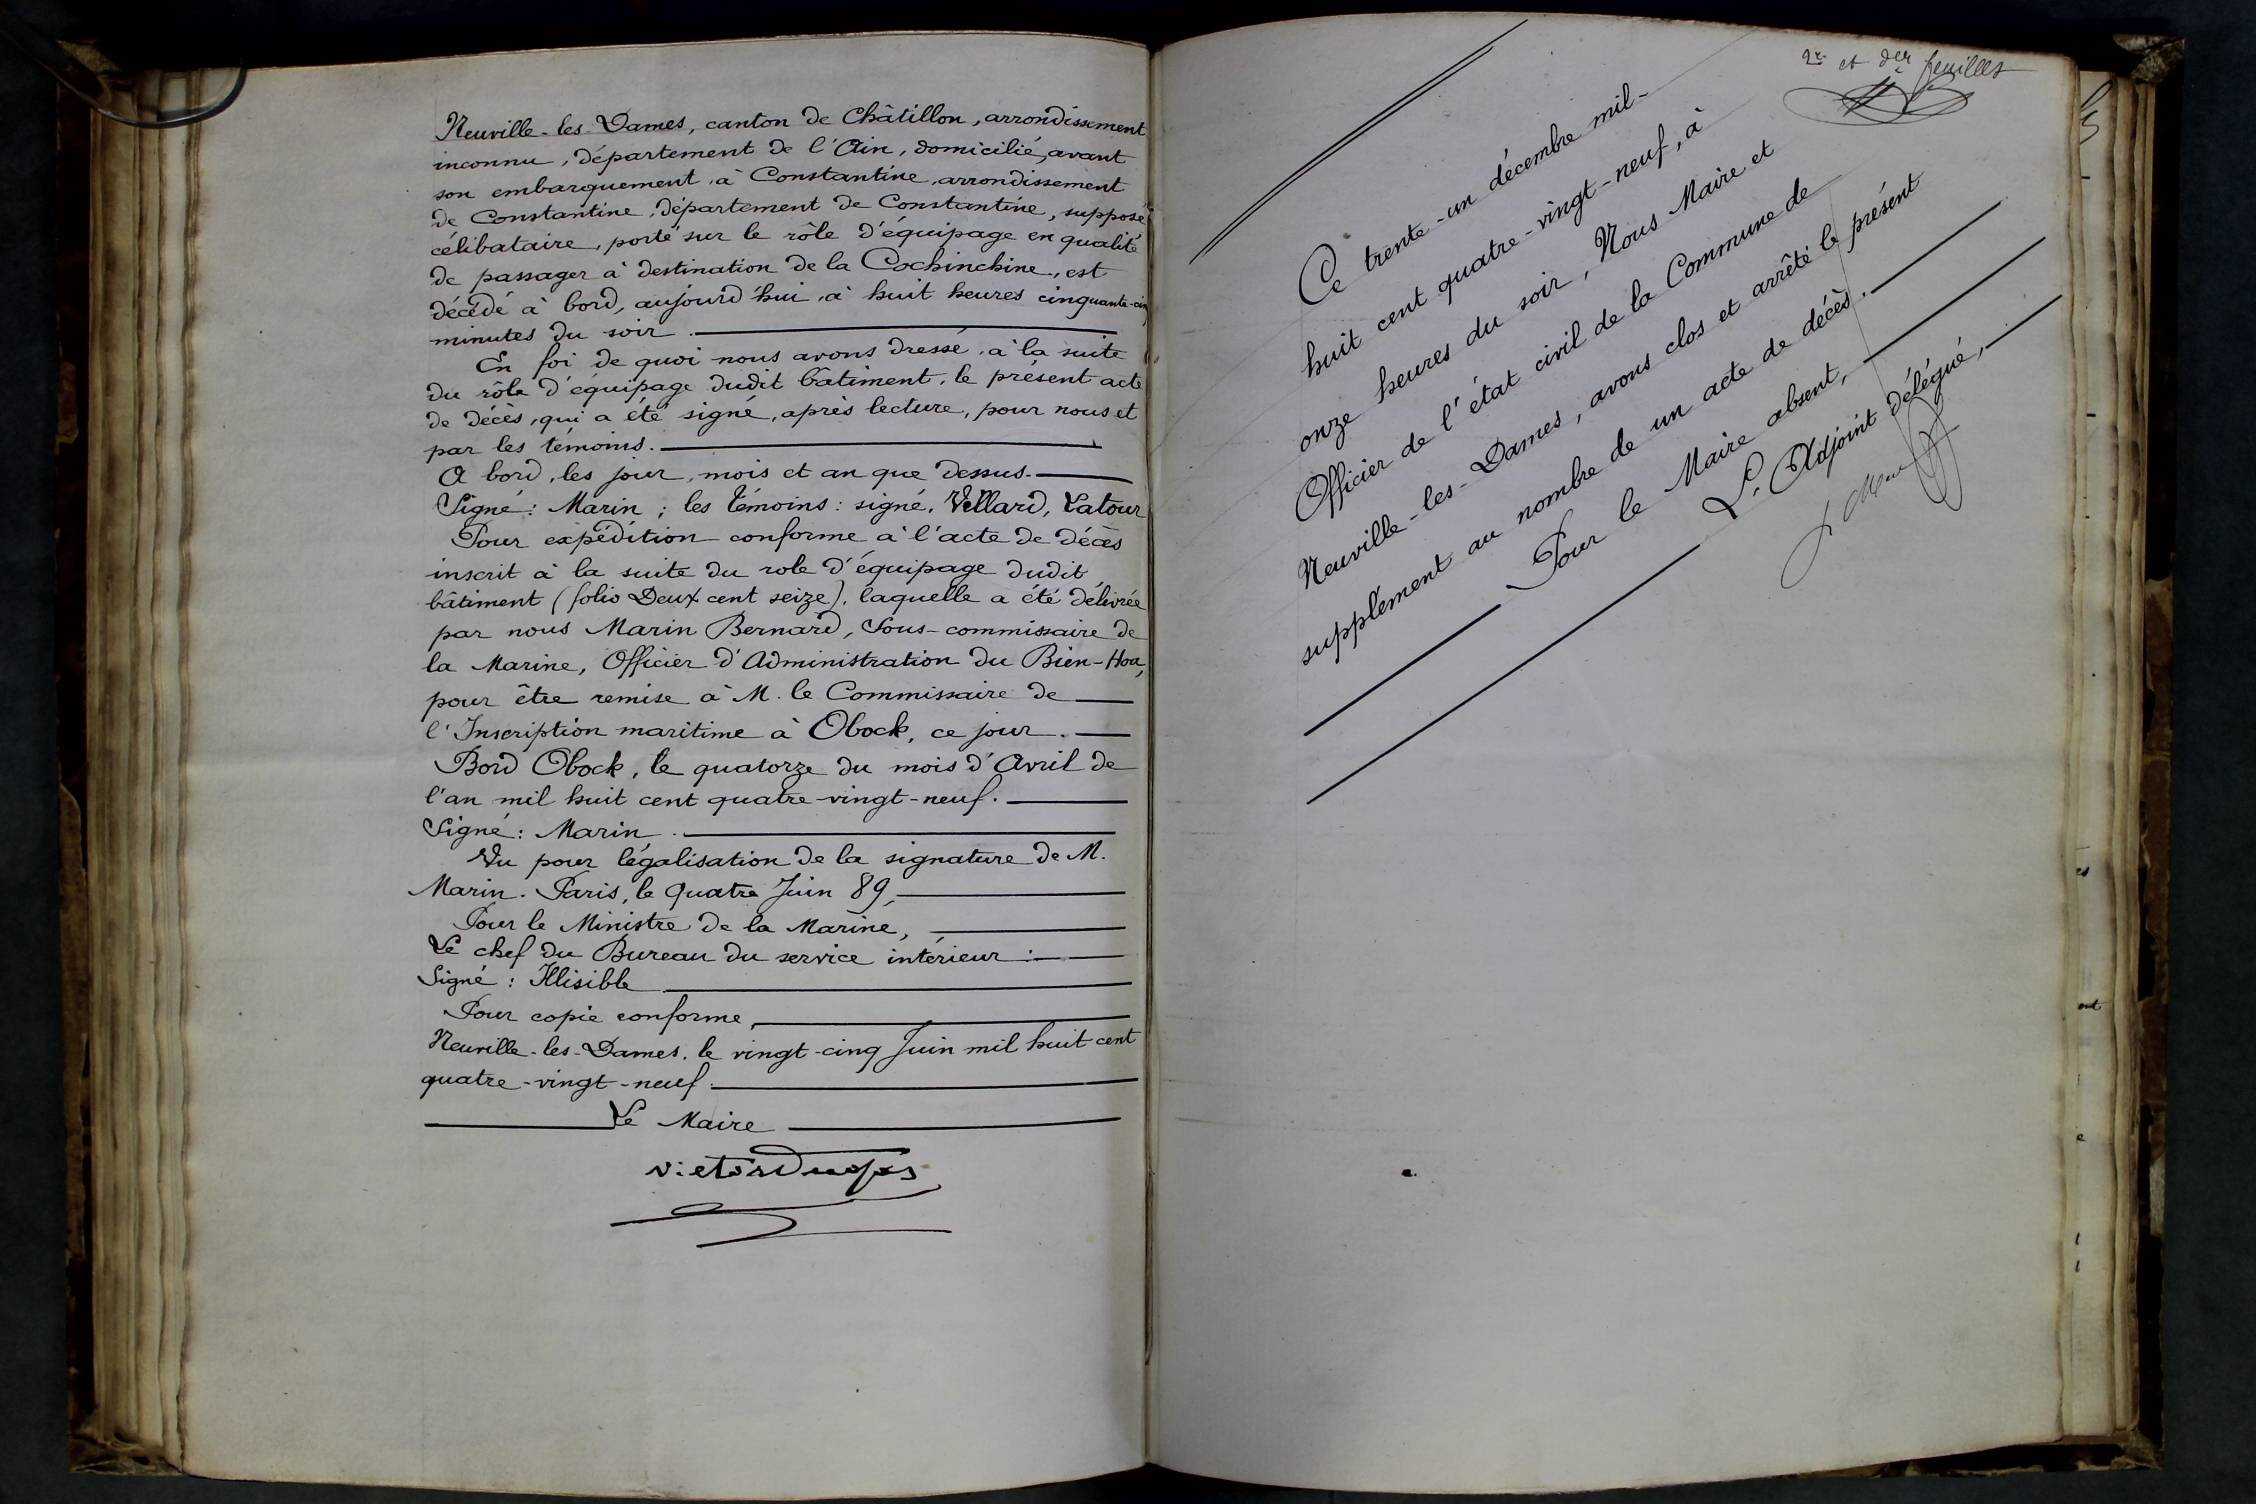 Neuville-les-Dames, canton de Châtillon, arrondissement
inconnu, département de l'Ain, domicilié, avant
son embarquement, à Constantine, arrondissement
de Constantine, département de Constantine, supposé
célibataire, porté sur le rôle d'équipage en qualité
de passager à destination de la Cochinchine, est
décédé à bord, aujourd'hui, à huit heures cinquante-cinq
minutes du soir.
En foi de quoi nous avons dressé, à la suite
du rôle d'équipage dudit bâtiment, le présent acte
de décès, qui a été signé, après lecture, pour nous et
par les témoins.
A bord, les jour, mois et an que dessus.
Signé: Marin; les témoins: signé, Vellard, Latour
Pour expédition conforme à l'acte de décès
inscrit à la suite du role d'équipage dudit
bâtiment (folio Deux cent seize), laquelle a été délivrée
par nous Marin Bernard, Sous-commissaire de
la Marine, Officier d'Administration du Bien-Hoa,
pour être remise à M. le Commissaire de
l'Inscription maritime à Obock, ce jour.
Bord Obock, le quatorze du mois d'Avril de
l'an mil huit cent quatre-vingt-neuf.
Signé: Marin.
Vu pour légalisation de la signature de M.
Marin. Paris, le quatre Juin 89,
Pour le Ministre de la Marine,
Le chef du Bureau du service intérieur:
Signé: Illisible
Pour copie conforme,
Neuville-les-Dames, le vingt-cinq Juin mil huit cent
quatre-vingt-neuf.
Le Maire
2e et der feuilles
Ce trente-un décembre mil-
huit cent quatre-vingt-neuf, à
onze heures du soir, Nous Maire et
Officier de l'état civil de la Commune de
Neuville-les-Dames, avons clos et arrêté le présent
supplément au nombre de un acte de décès.
Pour le Maire absent,
L'Adjoint délégué,